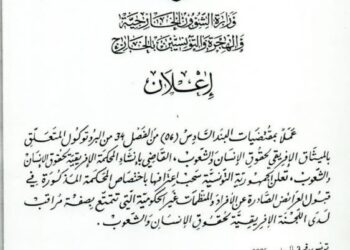 وزارة الشؤون الخارجية
والهجرة والتونسيين بالخارج
إعلان
عملا بمقتضيات البند السادس (06) من الفصل 34 من البروتوكول المتعلق
بالميثاق الإفريقي لحقوق الإنسان والشعوب، القاضي بإنشاء المحكمة الإفريقية لحقوق الإنسان
والشعوب، تعلن الجمهورية التونسية سحب اعترافها باختصاص المحكمة المذكورة في
قبول العرائض الصادرة عن الأفراد والمنظمات غير الحكومية التي تتمتع بصفة مراقب
لدى اللجنة الإفريقية لحقوق الإنسان والشعوب.